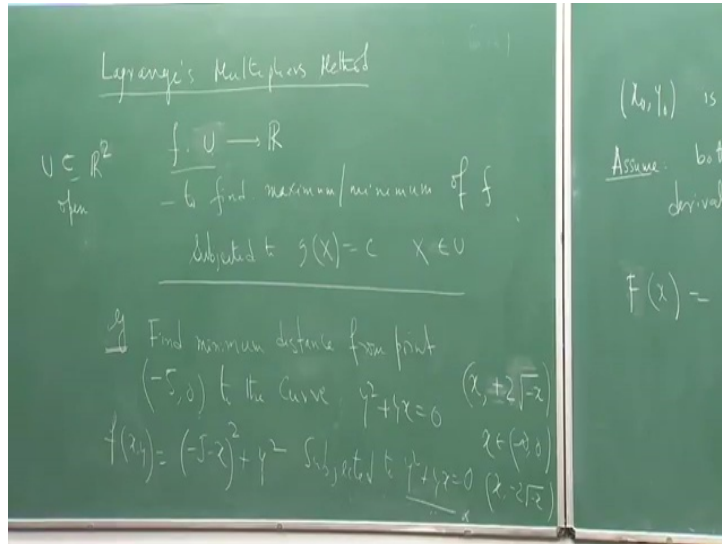 Lagrange's Multipliers Method
U ⊆ R² open
f: U → R
- to find maximum/minimum of f
Subjected to g(X) = c X ∈ U
Eg Find minimum distance from point
(-5, 0) to the Curve y²+4x=0
f(x,y) = (-5-x)² + y² Subjected to y²+4x=0
(x, +2√-x)
x ∈ (-∞, 0)
(x, -2√-x)
(x₀, y₀) is
Assume: bot
deriva
F(x) =